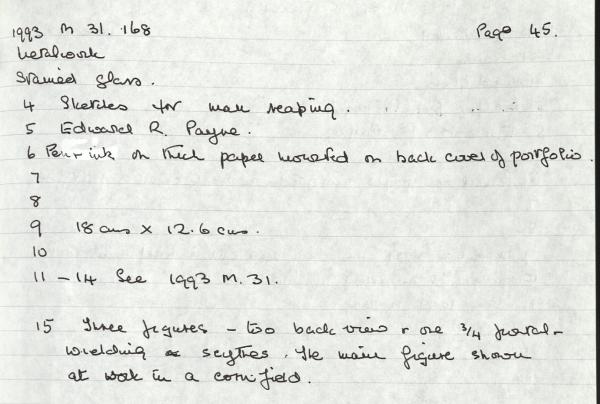 1993 M 31. 168 Page 45.
Stained glass.
4 Sketches for man reaping.
5 Edward R. Payne.
6 Pen + ink on thick paper mounted on back cover of portfolio.
7
8
9 18 cms x 12.6 cms.
10
11 - 14 See 1993 M. 31.
15 Three figures - two back view + one 3/4 frontal -
wielding scythes. The main figure shown
at work in a cornfield.